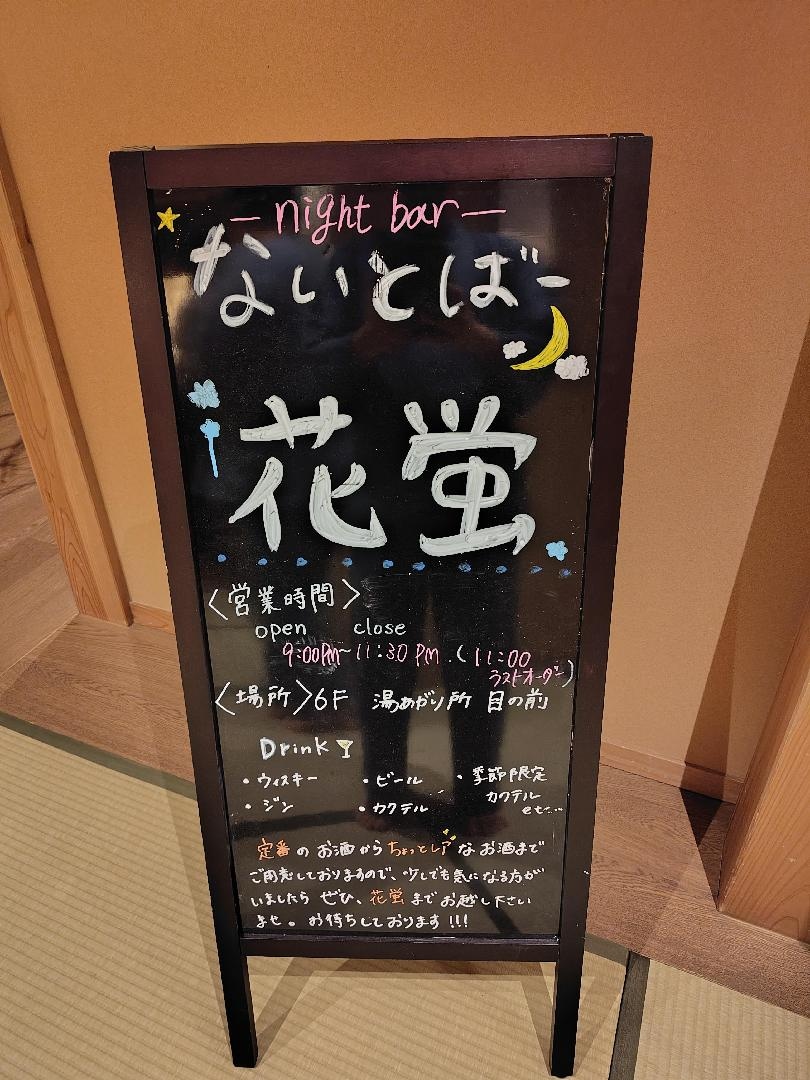 ー night bar ー
ないとばー
花蛍
〈営業時間〉
open close
9:00PM~11:30PM.(11:00
ラストオーダー)
〈場所〉6F 湯あがり所 目の前
Drink
・ウィスキー ・ビール ・季節限定
カクテル
・ジン ・カクテル etc…
定番のお酒からちょっとレアなお酒まで
ご用意しておりますので、少しでも気になる方が
いましたら ぜひ、花蛍までお越し下さい
ませ。お待ちしております!!!